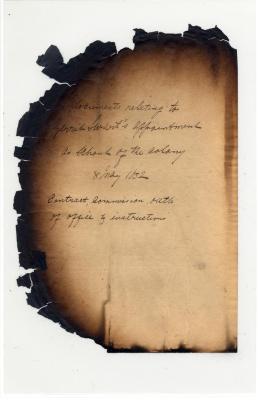 Documents relating to
appointment
as Schout of the colony
8 May 1652
Contract, Commission, oath
of office & instructions